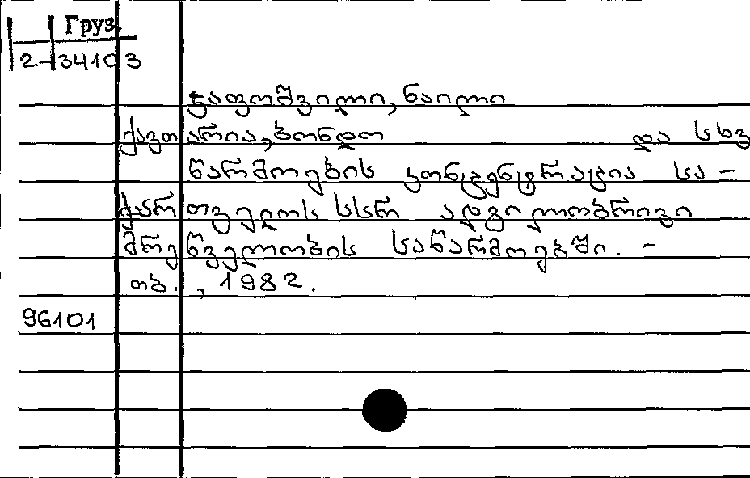 Груз.
2-34103
ნაილი
ქავთარია, ბონდო და სხვ
წარმოების კონცენტრაცია სა-
ქართველოს სსრ ადგილობრივი
მრეწველობის საწარმოებში. -
თბ., 1982.
96101